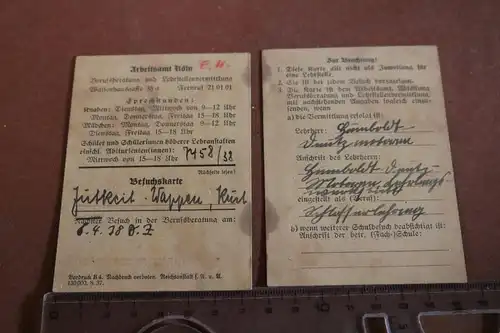 Arbeitsamt Köln
Berufsberatung und Lehrstellenvermittlung
Fernruf 21 01 01
Sprechstunden:
Knaben: Dienstag, Mittwoch von 9—12 Uhr
Montag, Donnerstag, Freitag 15—18 Uhr
Mädchen: Montag, Donnerstag 9—12 Uhr
Dienstag, Freitag 15—18 Uhr
Schüler und Schülerinnen höherer Lehranstalten
einschl. Abiturienten(innen):
Mittwoch von 15—18 Uhr
7458/38
Rückseite lesen!
Besuchskarte
Jütkeit - Wappen - Kurt
Nächster Besuch in der Berufsberatung am:
6.4.38 B.Z
Vordruck B 4. Nachdruck verboten. Reichsanstalt f. A. u. A.
Zur Beachtung!
1. Diese Karte gilt nicht als Zuweisung für
eine Lehrstelle.
2. Sie ist bei jedem Besuch vorzulegen.
3. Die Karte ist dem Arbeitsamt, Abteilung
Berufsberatung und Lehrstellenvermittlung,
mit nachstehenden Angaben wieder einzusenden, wenn
a) die Vermittlung erfolgt ist:
Lehrherr: Humboldt
Deutz motoren
Anschrift des Lehrherrn:
Humboldt Deutz-
Motoren, Lehrlings-
eingestellt als (Beruf):
Schlosserlehrling
b) wenn weiterer Schulbesuch beabsichtigt ist:
Anschrift der (Fach-)Schule: